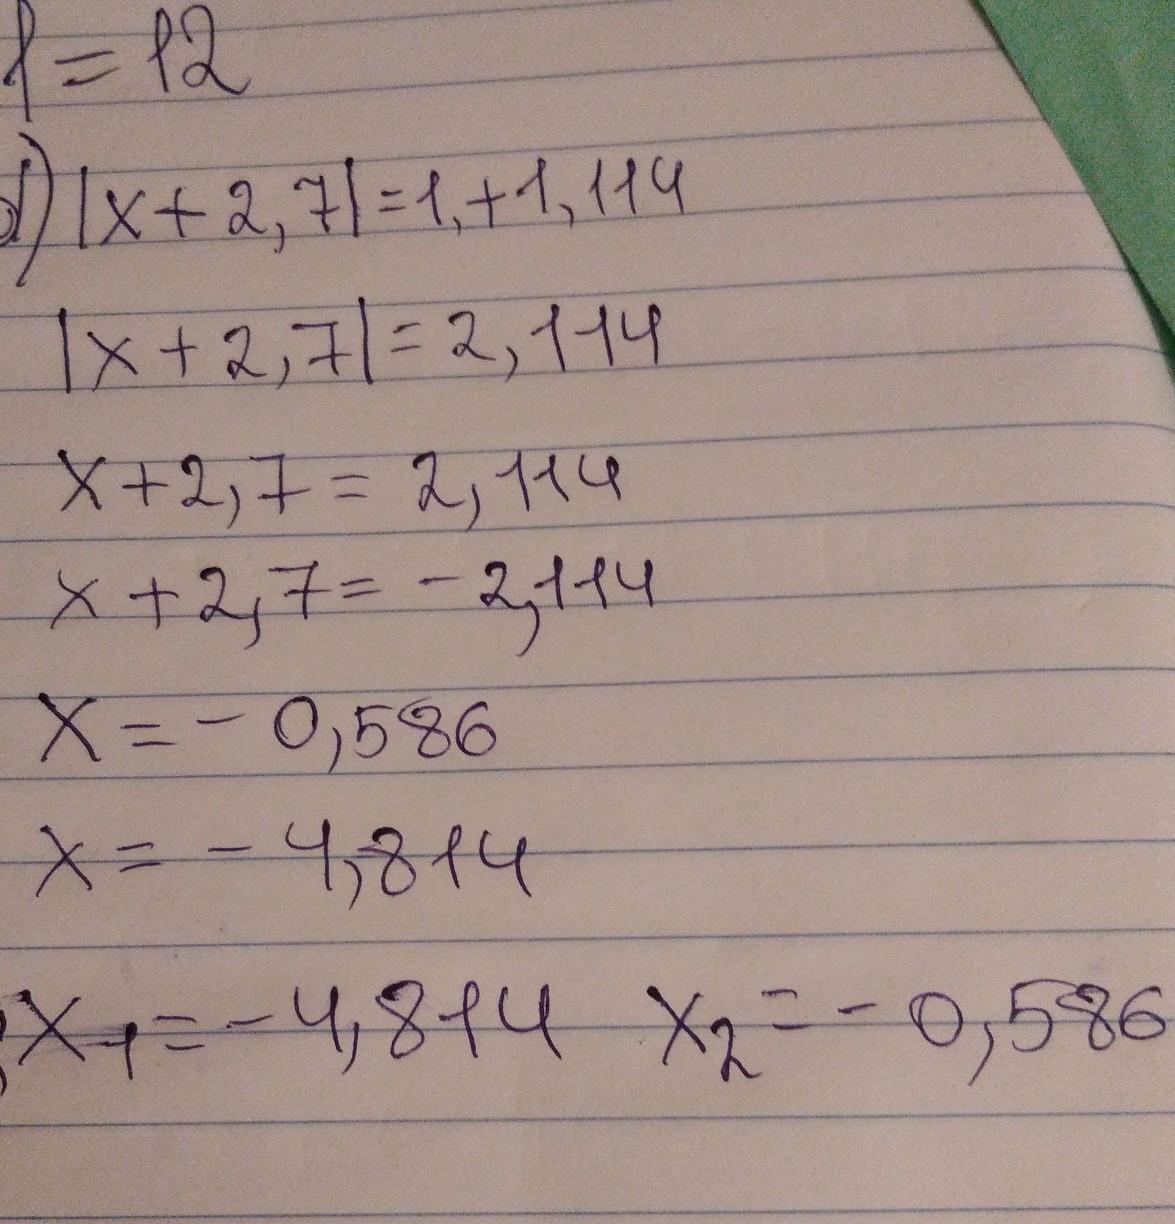 = 12
d) |x + 2,7| = 1, + 1,114
|x + 2,7| = 2,114
x + 2,7 = 2,114
x + 2,7 = - 2,114
x = - 0,586
x = - 4,814
x₁ = - 4,814 x₂ = - 0,586